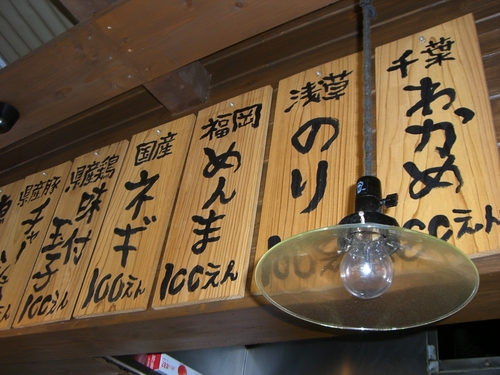 千葉
わかめ
100えん
浅草
のり
100えん
福岡
めんま
100えん
国産
ネギ
100えん
県産鶏
味付
玉子
100えん
県産豚
チャーシュー
100えん